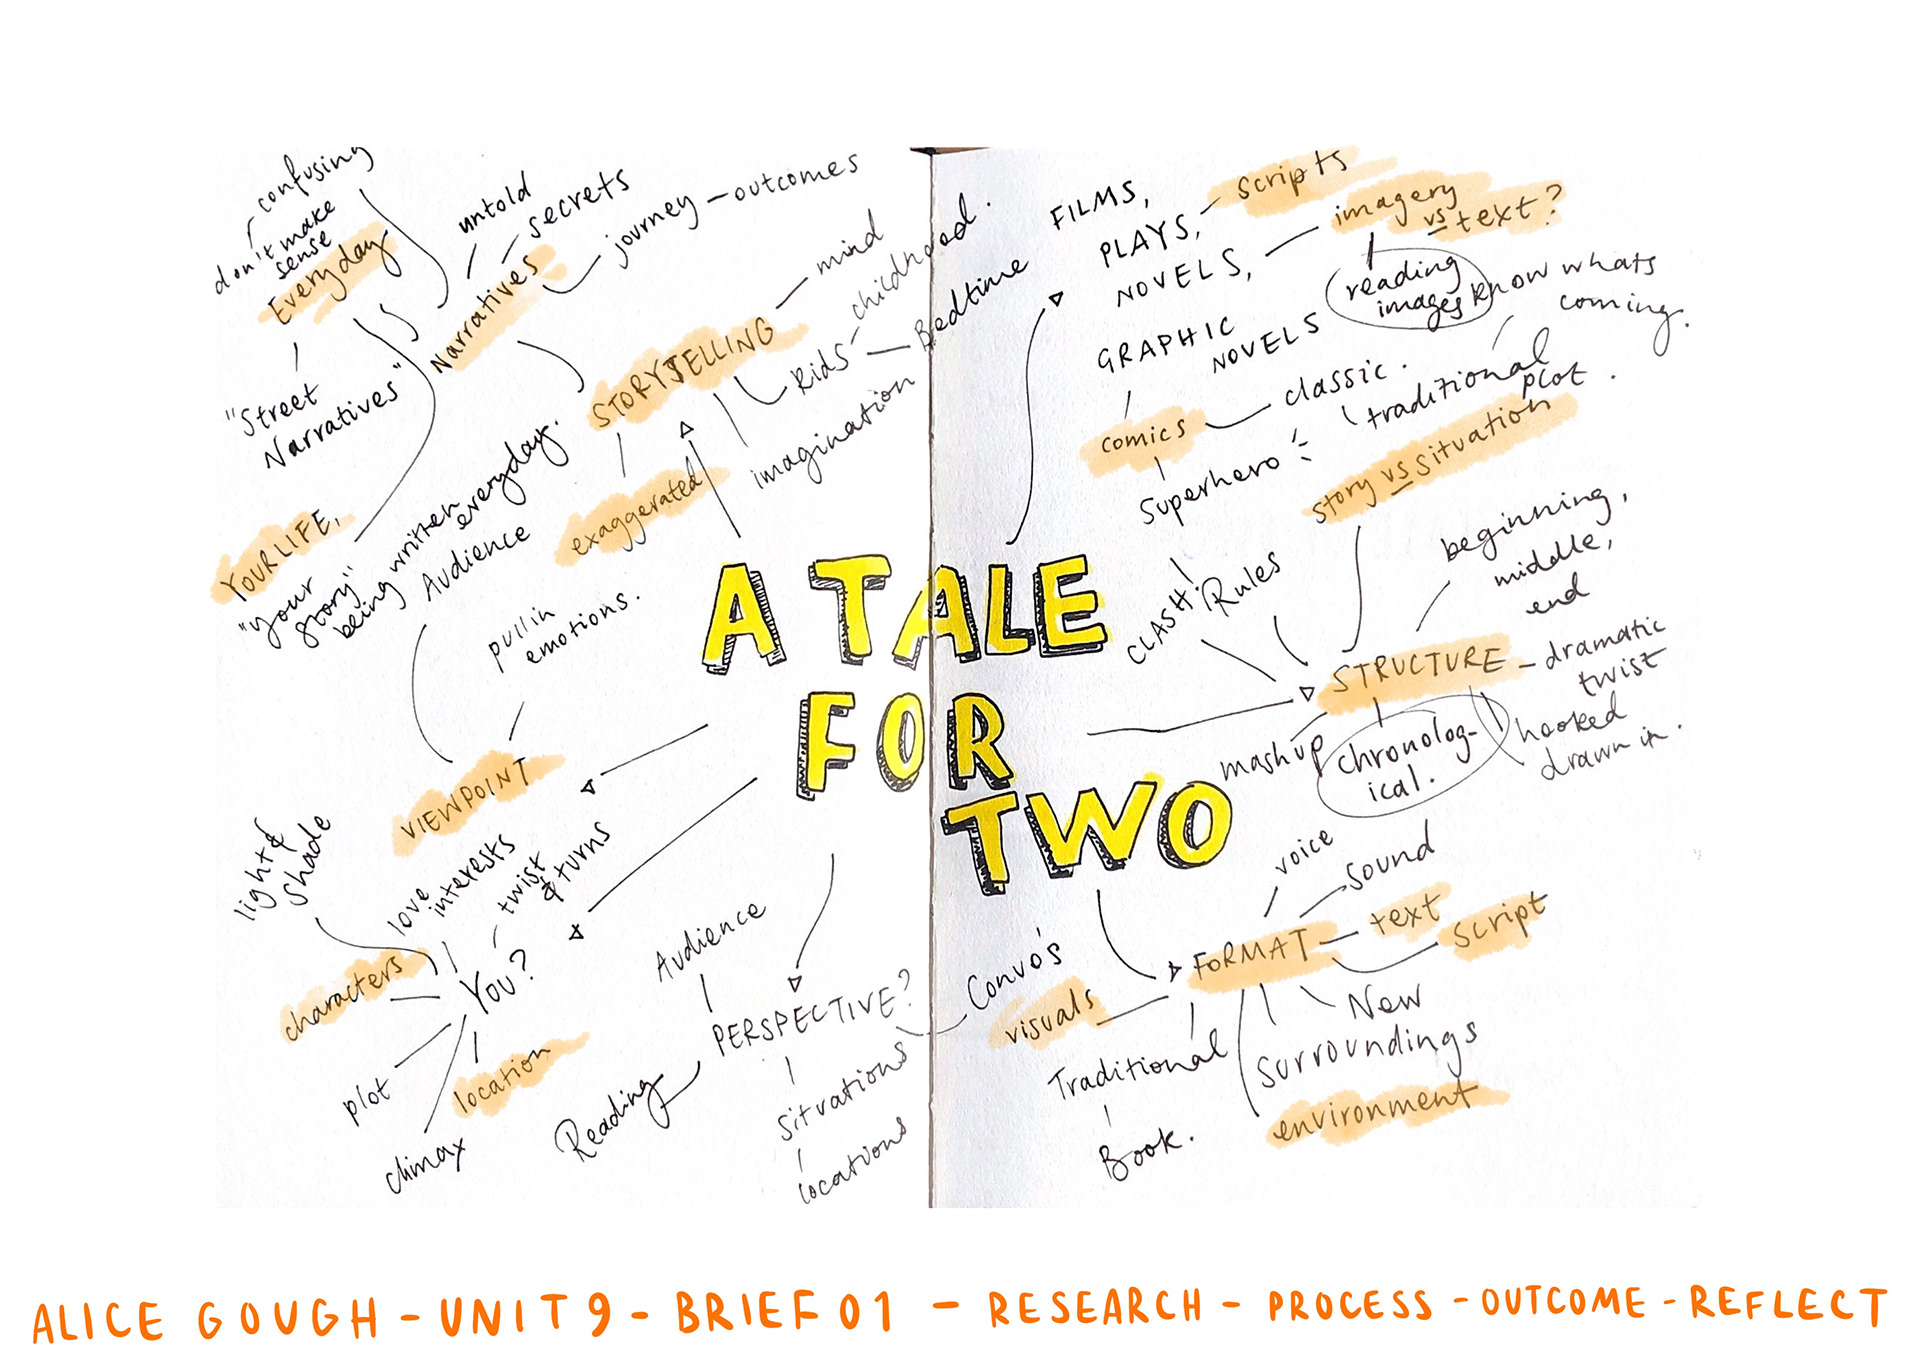 confusing
don't make
sense
Everyday
"Street
Narratives"
untold
secrets
journey - outcomes
Narratives
STORYTELLING
mind
Kids
childhood.
Bedtime
imagination
exaggerated
YOUR LIFE,
"your
story"
being written
everyday.
Audience
pull in
emotions.
VIEWPOINT
light &
shade
love
interests
twist
& turns
characters
YOU?
plot
location
climax
Audience
PERSPECTIVE?
Reading
Situations
locations
Convo's
A TALE
FOR
TWO
FILMS,
PLAYS,
NOVELS,
GRAPHIC
NOVELS
scripts
imagery
vs text?
reading
images
know whats
coming.
comics
classic.
traditional
plot.
Superhero
CLASH!
Rules
story vs situation
beginning,
middle,
end
STRUCTURE - dramatic
twist
hooked
drawn in.
mash up
chronolog-
ical.
voice
Sound
FORMAT
text
script
visuals
Traditional
Book.
New
Surroundings
environment
ALICE GOUGH - UNIT 9 - BRIEF 01 - RESEARCH - PROCESS - OUTCOME - REFLECT